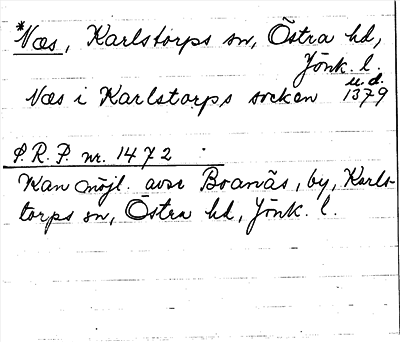 *Næs, Karlstorps sn, Östra hd,
Jönk. l.
Næs i Karlstorps socken u.d. 1379
P.R.P. nr. 1472
Kan möjl. avse Boanäs, by, Karls-
torps sn, Östra hd, Jönk. l.